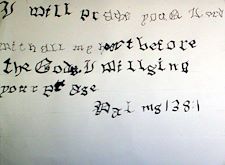 I will praise your Lord
with all my heart before
the Gods. I will sing
your praise
Psalms 138:1